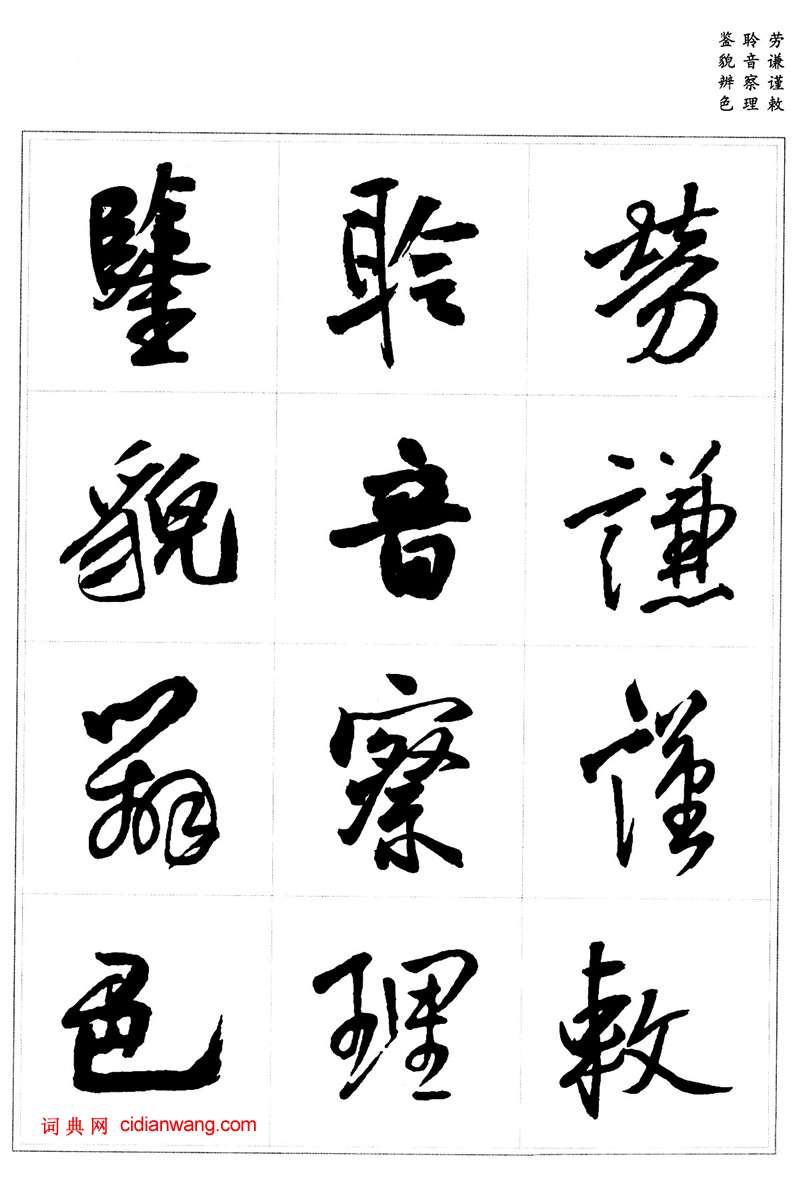 劳谦谨敕
聆音察理
鉴貌辨色
劳謙謹敕
聆音察理
鑒貌辨色
词典网 cidianwang.com